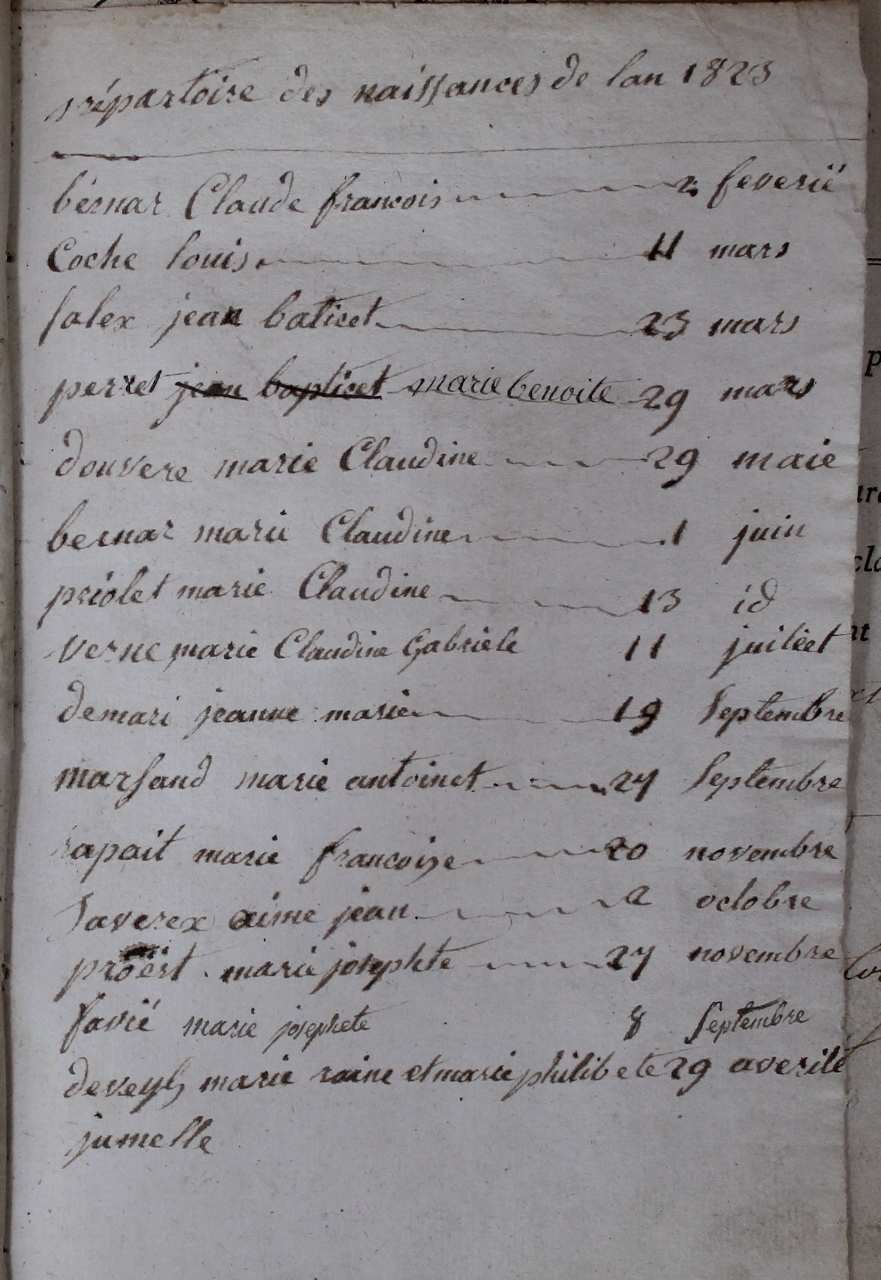 répartoire des naissances de lan 1823
bérnar Claude francois 2 feverié
Coche louis 11 mars
salex jean baticet 23 mars
perret jean bapticet marie benoite 29 mars
douvere marie Claudine 29 maie
bernar marie Claudine 1 juin
priolet marie Claudine 13 id
verne marie Claudine Gabriele 11 juiléet
demari jeanne marie 19 Septembre
marsand marie antoinet 27 Septembre
rapait marie francoise 20 novembre
Taverex aime jean 2 octobre
marie josephte 27 novembre
favié marie josephete 8 Septembre
marie raine et marie philibete 29 averile
jumelle